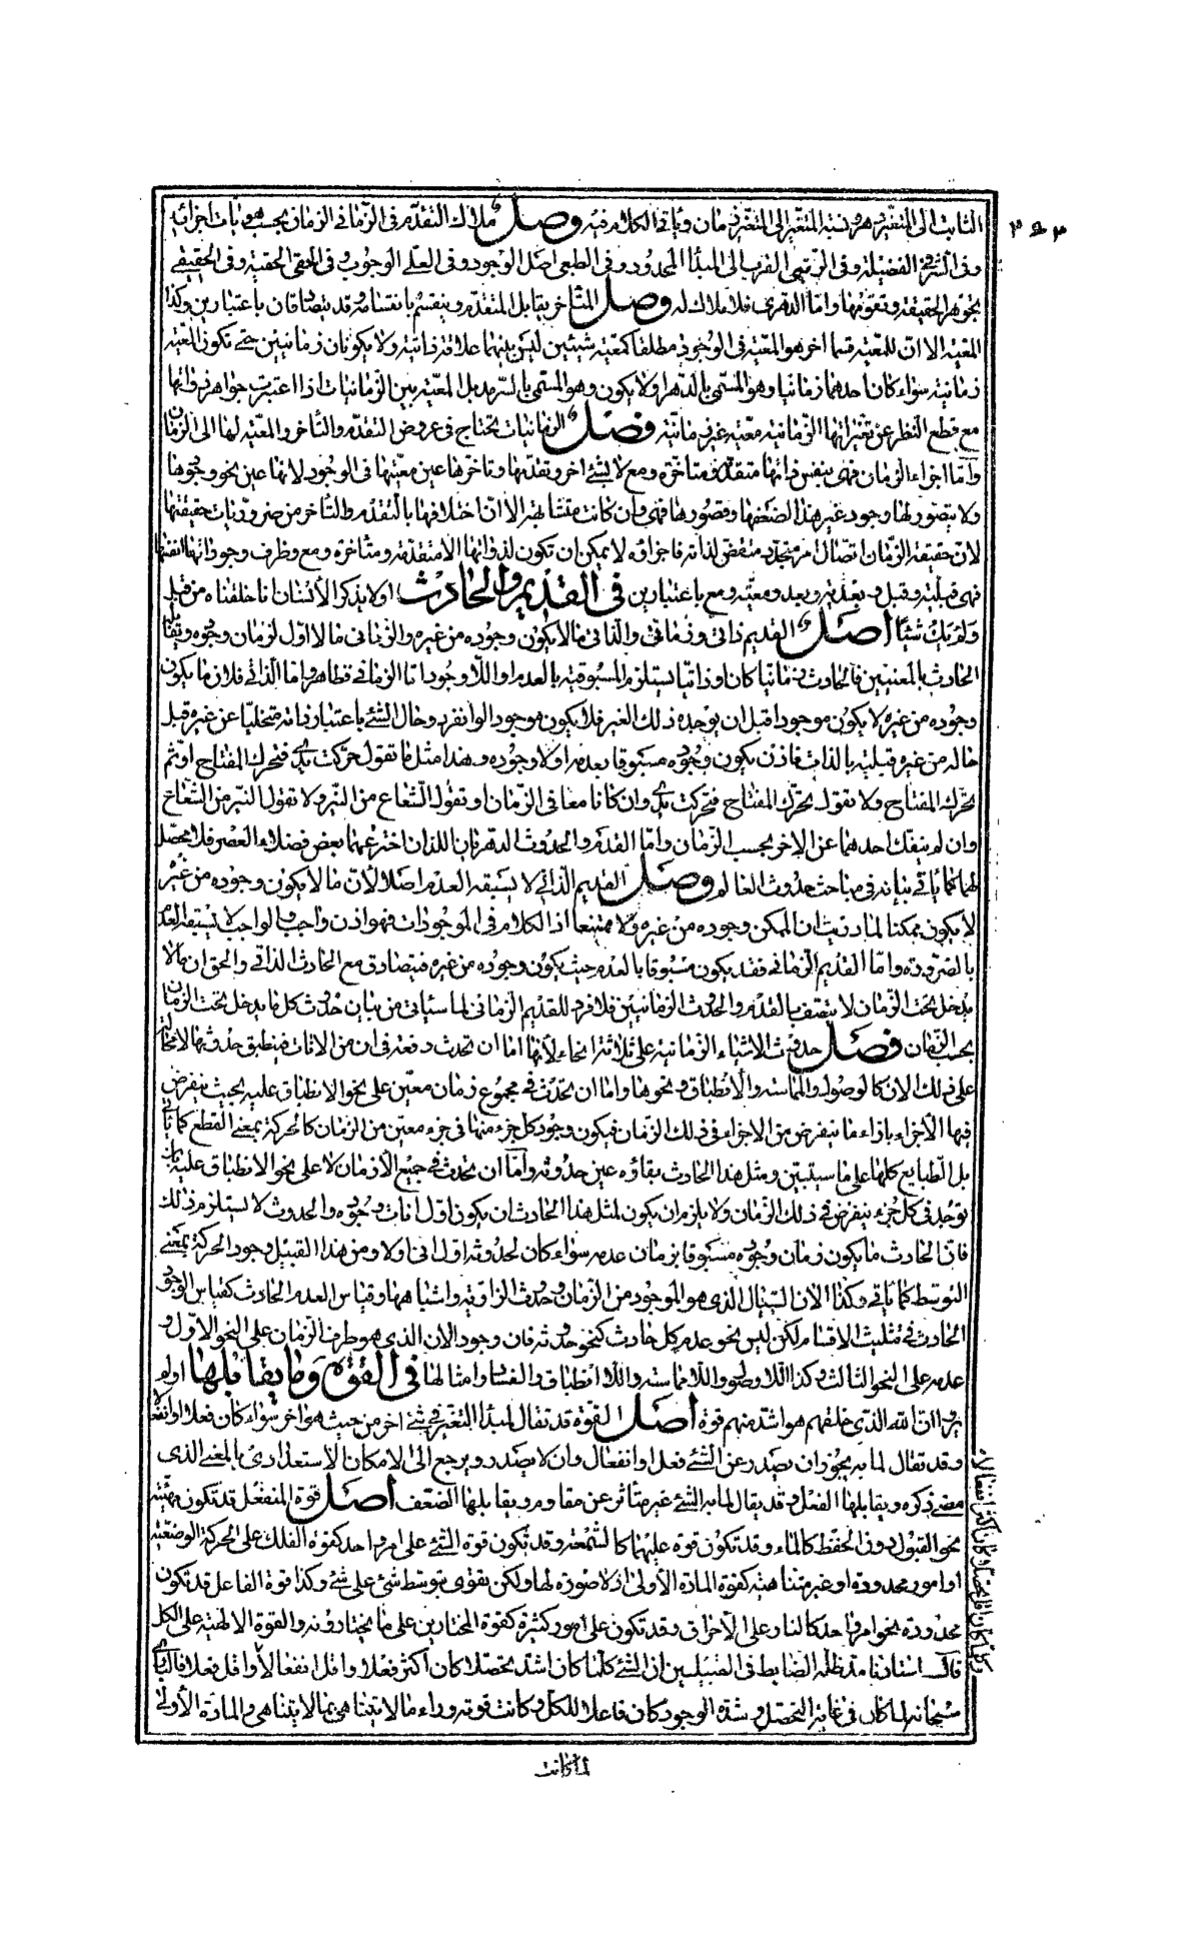 الثابت الى المتغير دهر ونسبة المتغير الى المتغير زمان وياتى الكلام فيه وصل ملاك التقدم فى الزمانى الزمان بحسب هويات اجزائه
وفى الشرفى الفضيلة وفى الرتبى القرب الى المبدأ المحدود وفى الطبعى اصل الوجود وفى العلى الوجوب وفى الحقى الحقية وفى الحقيقى
بجوهر الحقيقة وتقومها واما الدهرى فلا ملاك له وصل المتأخر يقابل المتقدم وينقسم بانقسامه وقد يتصادقان باعتبارين وكذا
المعية الا ان للمعية قسما اخر هو المعية فى الوجود مطلقا كمعية شيئين ليس بينهما علاقة ذاتية ولا يكونان زمانيين حتى تكون المعية
زمانية سواء كان احدهما زمانيا وهو المسمى بالدهر او لا يكون وهو المسمى بالسرمد بل المعية بين الزمانيات اذا اعتبرت جواهر ذواتها
مع قطع النظر عن تغيراتها الزمانية معية غير زمانية فصل الزمانيات يحتاج فى عروض التقدم والتأخر والمعية لها الى الزمان
واما اجزاء الزمان فهى بنفس ذواتها متقدمة متأخرة ومع لا بشئ اخر وتقدمها وتأخرها عين معيتها فى الوجود لانها عين نحو وجودها
ولا يتصور لها وجود غير هذا لضعفها وقصورها فهى وان كانت متشابهة الا ان اختلافها بالتقدم والتأخر من ضروريات حقيقتها
لان حقيقة الزمان اتصال امر متجدد منقض لذاته فاجزاؤه لا يمكن ان تكون لذواتها الا متقدمة ومتأخرة ومع وظرف وجوداتها انفسها
فهى قبلية وقبل وبعدية وبعد ومعية ومع باعتبارين فى القديم والحادث اولا يذكر الانسان انا خلقناه من قبل
ولم يك شيئا اصل القديم ذاتى وزمانى والذاتى ما لا يكون وجوده من غيره والزمانى ما لا اول لزمان وجوده ويقابله
الحادث بالمعنيين فالحادث زمانيا كان او ذاتيا يستلزم المسبوقية بالعدم او اللاوجود اما الزمانى فظاهر واما الذاتى فلان ما يكون
وجوده من غيره لا يكون موجودا قبل ان يوجده ذلك الغير فلا يكون موجودا لو انفرد وحال الشئ باعتبار ذاته متخليا عن غيره قبل
حاله من غيره قبلية بالذات فاذن يكون وجوده مسبوقا بعدمه او لا وجوده وهذا مثل ما تقول حركت يدى فتحرك المفتاح او ثم
تحرك المفتاح ولا تقول تحرك المفتاح فتحركت يدى وان كانا معا فى الزمان او تقول الشعاع من النير ولا تقول النير من الشعاع
وان لم ينفك احدهما عن الاخر بحسب الزمان واما القدم والحدوث الدهريان اللذان اخترعهما بعض فضلاء العصر فلا محصل
لهما كما ياتى بيانه فى مباحث حدوث العالم وصل القديم الذاتى لا يسبقه العدم اصلا لان ما لا يكون وجوده من غيره
لا يكون ممكنا لما دريت ان الممكن وجوده من غيره ولا ممتنعا اذ الكلام فى الموجودات فهو اذن واجب والواجب لا يسبقه العدم
بالضرورة واما القديم الزمانى فقد يكون مسبوقا بالعدم حيث يكون وجوده من غيره فيتصادق مع الحادث الذاتى والحق ان ما لا
يدخل تحت الزمان لا يتصف بالقدم والحدوث الزمانيين فلا فرد للقديم الزمانى لما سيأتى من بيان حدوث كل ما يدخل تحت الزمان
بحسب الزمان فصل حدوث الاشياء الزمانية على ثلاثة انحاء لانها اما ان تحدث دفعة فى ان من الانات فينطبق حدوثها لا محالة
على ذلك الان كالوصول والمماسة والانطباق ونحوها واما ان تحدث فى مجموع زمان معين على نحو الانطباق عليه بحيث ينفرض
فيها الاجزاء بازاء ما ينفرض من الاجزاء فى ذلك الزمان فيكون وجود كل جزء منها فى جزء معين من الزمان كالحركة بمعنى القطع كما ياتى
بل الطبايع كلها على ما سيتبين ومثل هذا الحادث بقاؤه عين حدوثه واما ان تحدث فى جميع الازمان لا على نحو الانطباق عليه بان
توجد فى كل جزء ينفرض فى ذلك الزمان ولا يلزم ان يكون لمثل هذا الحادث ان يكون اول انات وجوده والحدوث لا يستلزم ذلك
فان الحادث ما يكون زمان وجوده مسبوقا بزمان عدمه سواء كان لحدوثه اول انى اولا ومن هذا القبيل وجود الحركة بمعنى
التوسط كما ياتى وكذا الان السيال الذى هو الموجود من الزمان وحدوث الزاوية واشباهها وقياس العدم الحادث كقياس الوجود
الحادث فى تثليث الاقسام لكن ليس نحو عدم كل حادث كنحو حدوثه فان وجود الان الذى هو طرف الزمان على النحو الاول و
عدمه على النحو الثالث وكذا اللاوصول واللامماسة واللاانطباق والفساد امثالها فى القوة وما يقابلها اولم
يروا ان الله الذى خلقهم هو اشد منهم قوة اصل القوة قد تقال لمبدأ التغير فى شئ اخر من حيث هو اخر سواء كان فعلا او انفعالا
وقد تقال لما به يجوز ان يصدر عن الشئ فعل او انفعال وان لا يصدر ويرجع الى الامكان الاستعدادى بالمعنى الذى
مضى ذكره ويقابلها الفعل وقد يقال لما به الشئ غير متأثر عن مقاوم ويقابلها الضعف اصل قوة المنفعل قد تكون مهيئة
نحو القبول دون الحفظ كالماء وقد تكون قوة عليهما كالشمعة وقد تكون قوة الشئ على امر واحد كقوة الفلك على الحركة الوضعية
او امور محدودة او غير متناهية كقوة المادة الاولى اذ لا صورة لها ولكن يقوى بتوسط شئ على شئ وكذا قوة الفاعل قد تكون
محدودة نحو امر واحد كالنار على الاحراق وقد تكون على امور كثيرة كقوة المختارين على ما يختارونه والقوة الالهية على الكل
قال استادنا مد ظله الضابط فى القبيلين ان الشئ كلما كان اشد تحصلا كان اكثر فعلا واقل انفعالا واقل فعلا فالبارى
سبحانه لما كان فى غاية التحصل وشدة الوجود كان فاعلا للكل وكانت قوته وراء ما لا يتناهى بما لا يتناهى والمادة الاولى
لما كانت